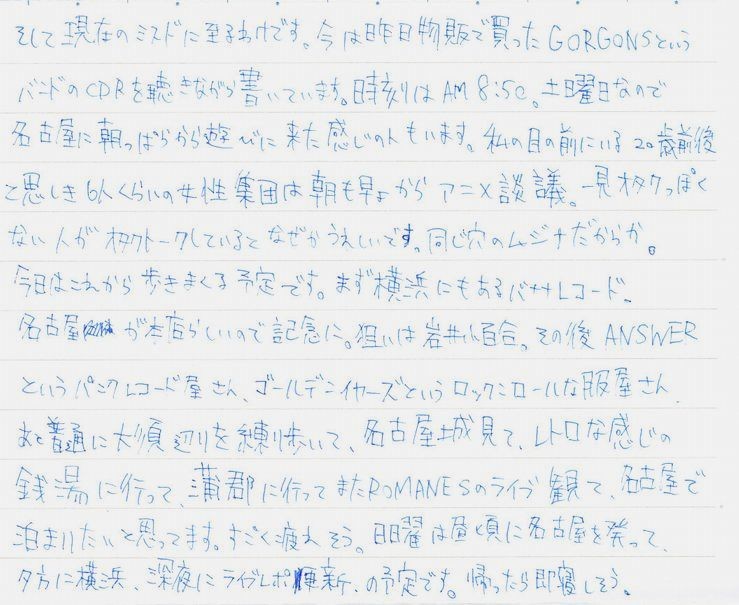 そして現在のミスドに至るわけです。今は昨日物販で買ったGORGONSという
バンドのCDRを聴きながら書いています。時刻はAM 8:50。土曜日なので
名古屋に朝っぱらから遊びに来た感じの人もいます。私の目の前にいる20歳前後
と思しき6人くらいの女性集団は朝も早よからアニメ談議。一見オタクっぽく
ない人がオタクトークしているとなぜかうれしいです。同じ穴のムジナだからか。
今日はこれから歩きまくる予定です。まず横浜にもあるバナナレコード、
名古屋が本店らしいので記念に。狙いは岩井小百合。その後ANSWER
というパンクレコード屋さん、ゴールデンイヤーズというロックンロールな服屋さん、
あと普通に大須辺りを練り歩いて、名古屋城見て、レトロな感じの
銭湯に行って、蒲郡に行ってまたROMANESのライブ観て、名古屋で
泊まりたいと思ってます。すごく疲れそう。日曜は昼頃に名古屋を発って、
夕方に横浜、深夜にライブレポ更新、の予定です。帰ったら即寝しそう。